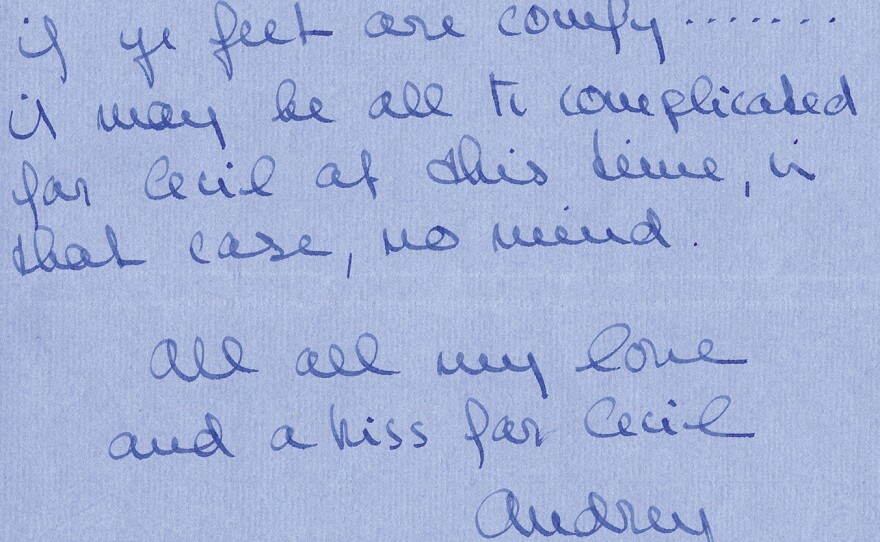 if ye feet are comfy.......
it may be all to complicated
for Cecil at this time, in
that case, no mind.
All all my love
and a kiss for Cecil
Audrey